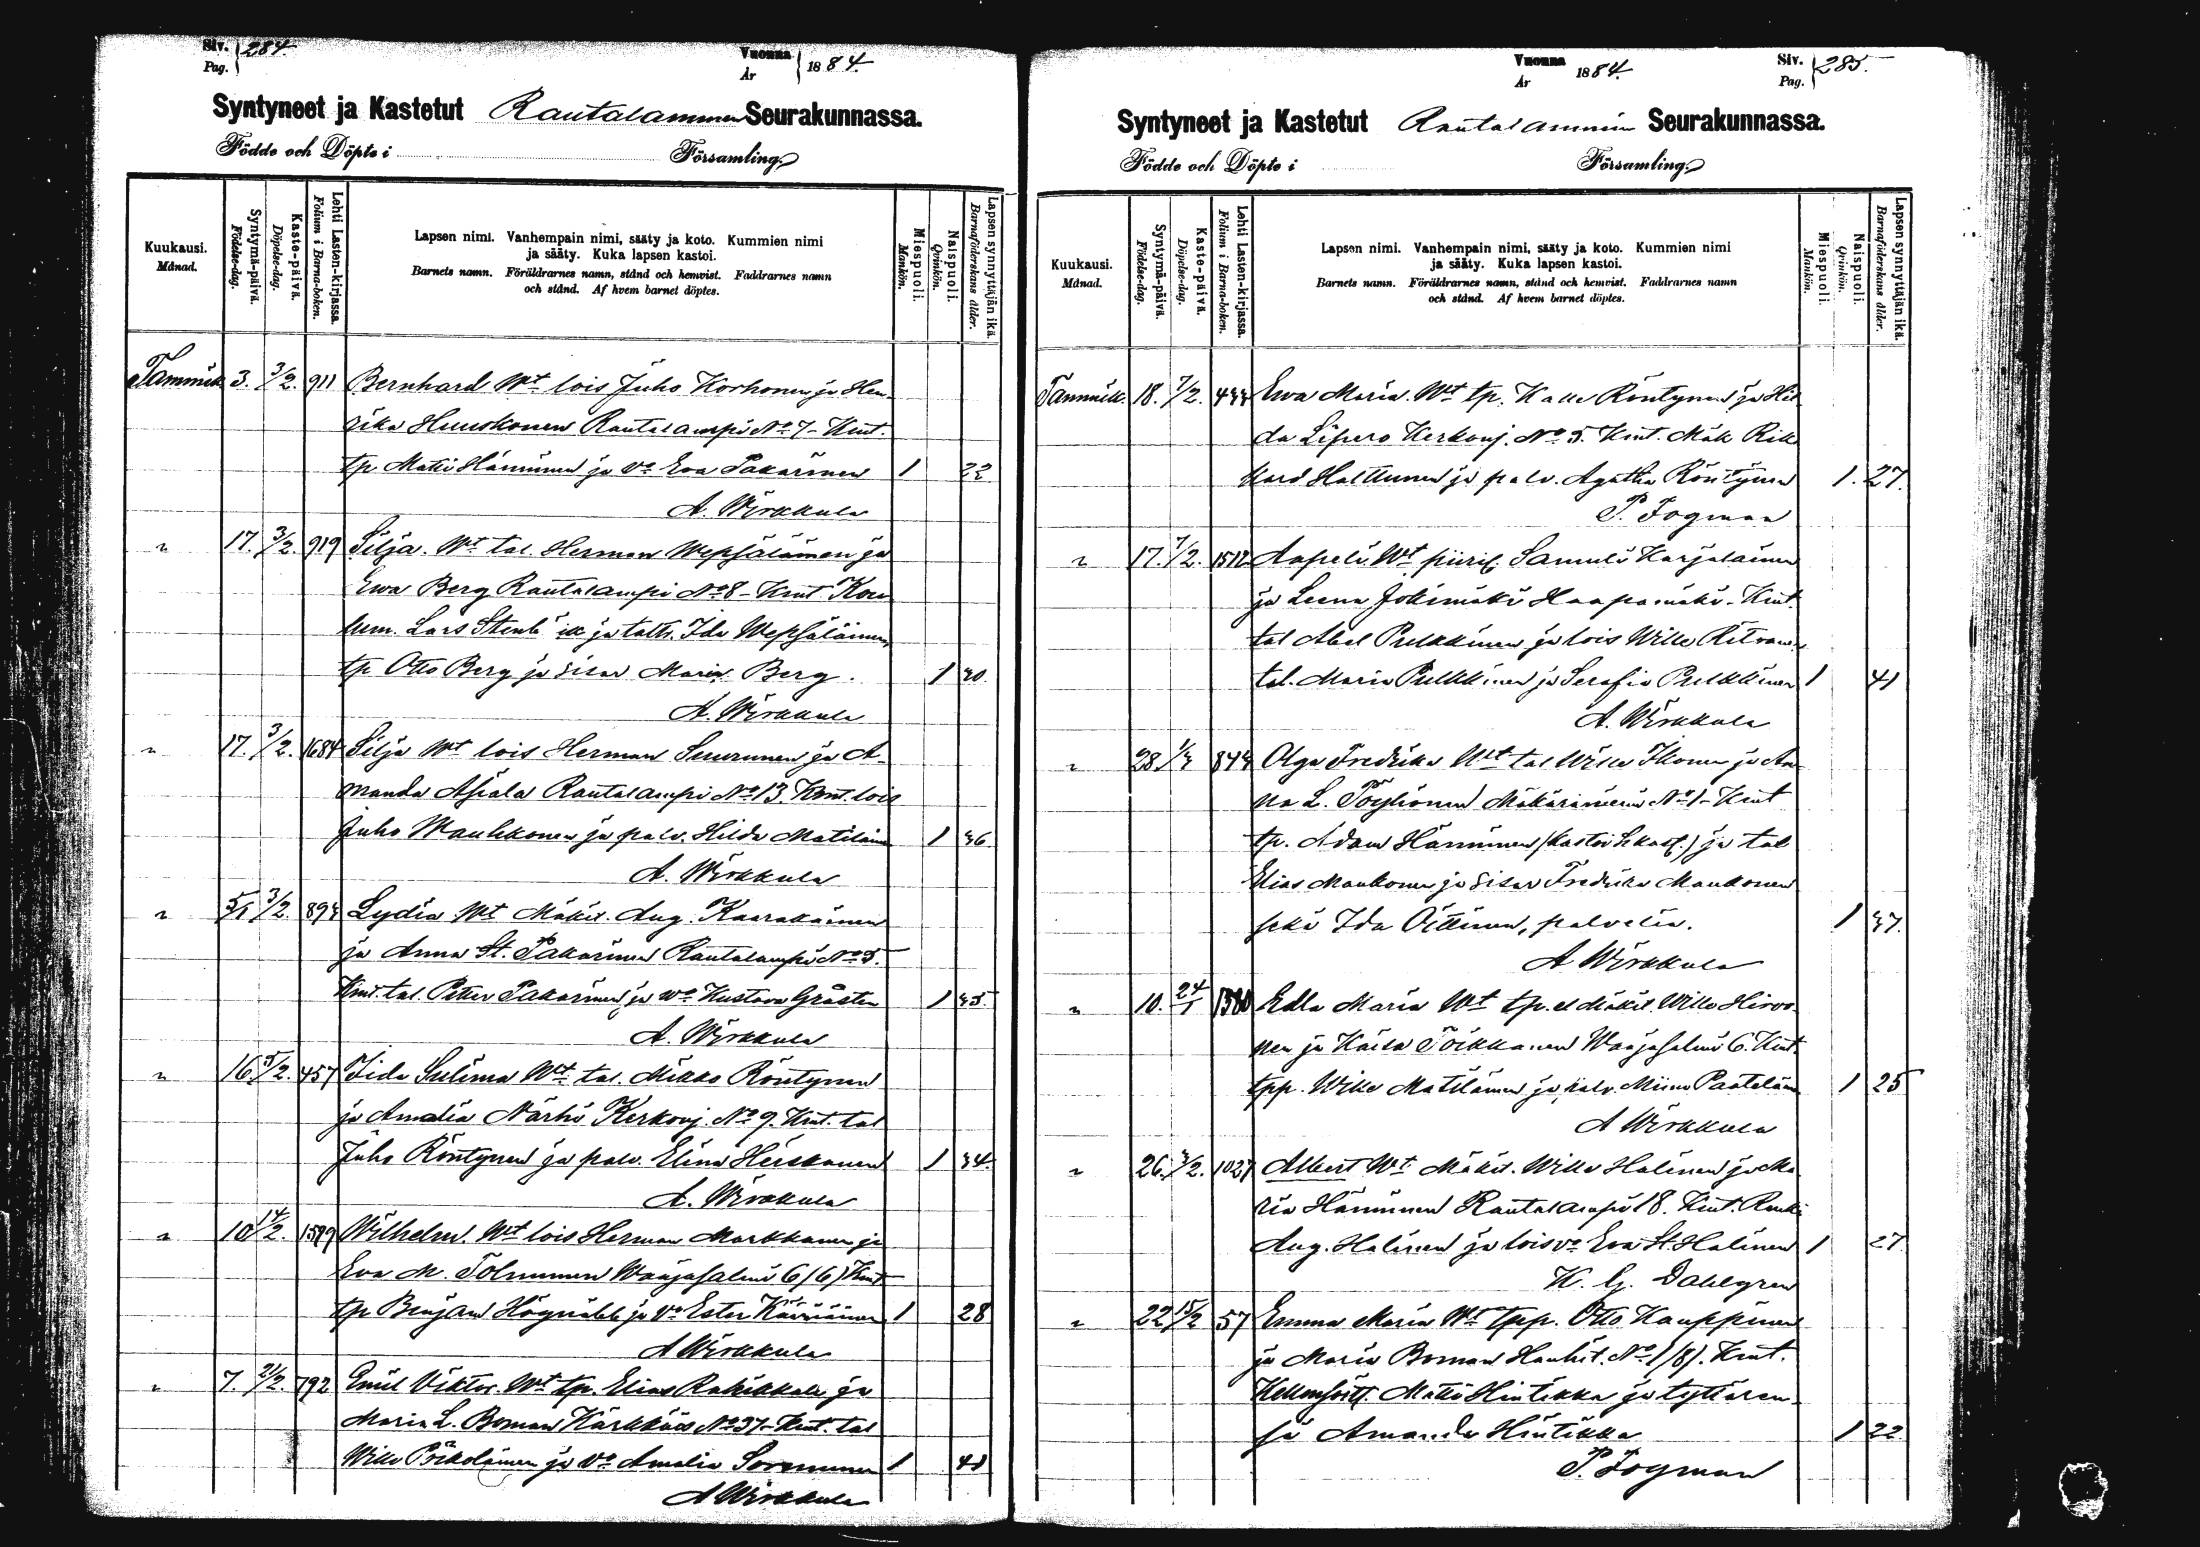 Siv. 284.
Pag.
Vuonna 1884.
År
Syntyneet ja Kastetut Rautalammin Seurakunnassa.
Födde och Döpte i Församling.
Kuukausi. Månad.
Syntymä-päivä. Födelse-dag.
Kaste-päivä. Döpelse-dag.
Lehti Lasten-kirjassa. Folium i Barna-boken.
Lapsen nimi. Vanhempain nimi, sääty ja koto. Kummien nimi
ja sääty. Kuka lapsen kastoi.
Barnets namn. Föräldrarnes namn, stånd och hemvist. Faddrarnes namn
och stånd. Af hvem barnet döptes.
Miespuoli. Mankön.
Naispuoli. Qvinkön.
Lapsen synnyttäjän ikä. Barnaföderskans ålder.
Tammik. 3. 3/2. 911 Bernhard Wt lois Juho Korhonen ja Hen-
rika Huuskonen Rautalampi No 7 - Kmt.
tp Matti Hänninen ja va Eva Pakarinen 1 22
A. Wirkkula
" 17. 3/2. 919 Silja. Wt tal. Herman Wepsäläinen ja
Ewa Berg Rautalampi No 8 - Kmt
Lars ja Ida Wepsäläinen,
tp Otto Berg ja sisar Maria Berg. 1 40.
A. Wirkkula
" 17. 3/2. 1684 Silja Wt lois Herman Suurunen ja A-
manda Rautalampi No 13. Kmt. lois
Juho Maukkonen ja palv. Hilda Matilain 1 36.
A. Wirkkula
" 5/1 3/2. 894 Lydia Wt Mäkit. Aug. Kaarakainen
ja Anna St. Pakarinen Rautalampi No 5.
Kmt. tal. Petter Pakarinen ja wa Kustava Gråsten 1 35.
A. Wirkkula
" 16. 5/2. 457 Iida Sulima Wt tal. Mikko Röntynen
ja Amalia Närhi Kerkonj. No 9. Kmt. tal
Juho Röntynen ja palv. Elina Heiskanen 1 34.
A. Wirkkula
" 10 14/2. 1579 Wilhelm. Wt lois Herman Markkanen ja
Eva M. Tolmunen Waajasalmi 6/6) Kmt
tp Benjam Högmäld ja Va Ester 1 28
A Wirkkula
" 7. 21/2. 792 Emil Viktor. Wt tp. Elias Rahikkala ja
Maria L. Boman Kärkkäis No 37 - Kmt. tal
Wille Pöikoläinen ja Va Amalia Sormunen 1 41
A Wirkkula
Vuonna 1884.
År
Siv. 285.
Pag.
Syntyneet ja Kastetut Rautalammin Seurakunnassa.
Födde och Döpte i Församling.
Kuukausi. Månad.
Syntymä-päivä. Födelse-dag.
Kaste-päivä. Döpelse-dag.
Lehti Lasten-kirjassa. Folium i Barna-boken.
Lapsen nimi. Vanhempain nimi, sääty ja koto. Kummien nimi
ja sääty. Kuka lapsen kastoi.
Barnets namn. Föräldrarnes namn, stånd och hemvist. Faddrarnes namn
och stånd. Af hvem barnet döptes.
Miespuoli. Mankön.
Naispuoli. Qvinkön.
Lapsen synnyttäjän ikä. Barnaföderskans ålder.
Tammik. 18. 7/2. 444 Ewa Maria. Wt tp. Kalle Röntynen ja Hil
da Lipero Kerkonj. No 5. Kmt. Mäk Rik
kard Halttunen ja palv. Agatha Röntynen 1. 27.
P. Fogman
" 17. 7/2. 1512 Aapeli Wt piiril. Samuli Karjalainen
ja Leena Jokimäki Haapamäki - Kmt.
tal Abel Pulkkinen ja lois Wille
tal. Maria Pulkkinen ja Serafia Pulkkinen 1 41
A. Wirkkula
" 28 844 Olga Fredrika Wt tal Wille Ikonen ja An
na L. Pöyhönen No 1 - Kmt
tp. Adam Hänninen ja tal
Elias Maukonen ja sisar Fredrika Maukonen
sekä Ida Oittinen, palvelia. 1 37.
A Wirkkula
" 10. 24/1 1580 Edla Maria Wt tp. el mäkit Wille Hirvo-
nen ja Kaisa Töikkanen Waajasalmi 6. Kmt.
tpp. Wille Matilainen ja palv. Miina 1 25
A Wirkkula
" 26. 3/2. 1027 Albert Wt Mäkit. Wille Halinen ja Ma
ria Hänninen Rautalampi 18. Kmt. Renki
Aug. Halinen ja lois va Eva St. Halinen 1 27
K. G. Dahlgren
" 22 15/2 57 Emma Maria Wt tpp. Otto Kauppinen
ja Maria Boman Hankit. No 1/8). Kmt.
Matti Hintikka ja tyttären-
sä Amanda Hintikka 1 22
P. Fogman